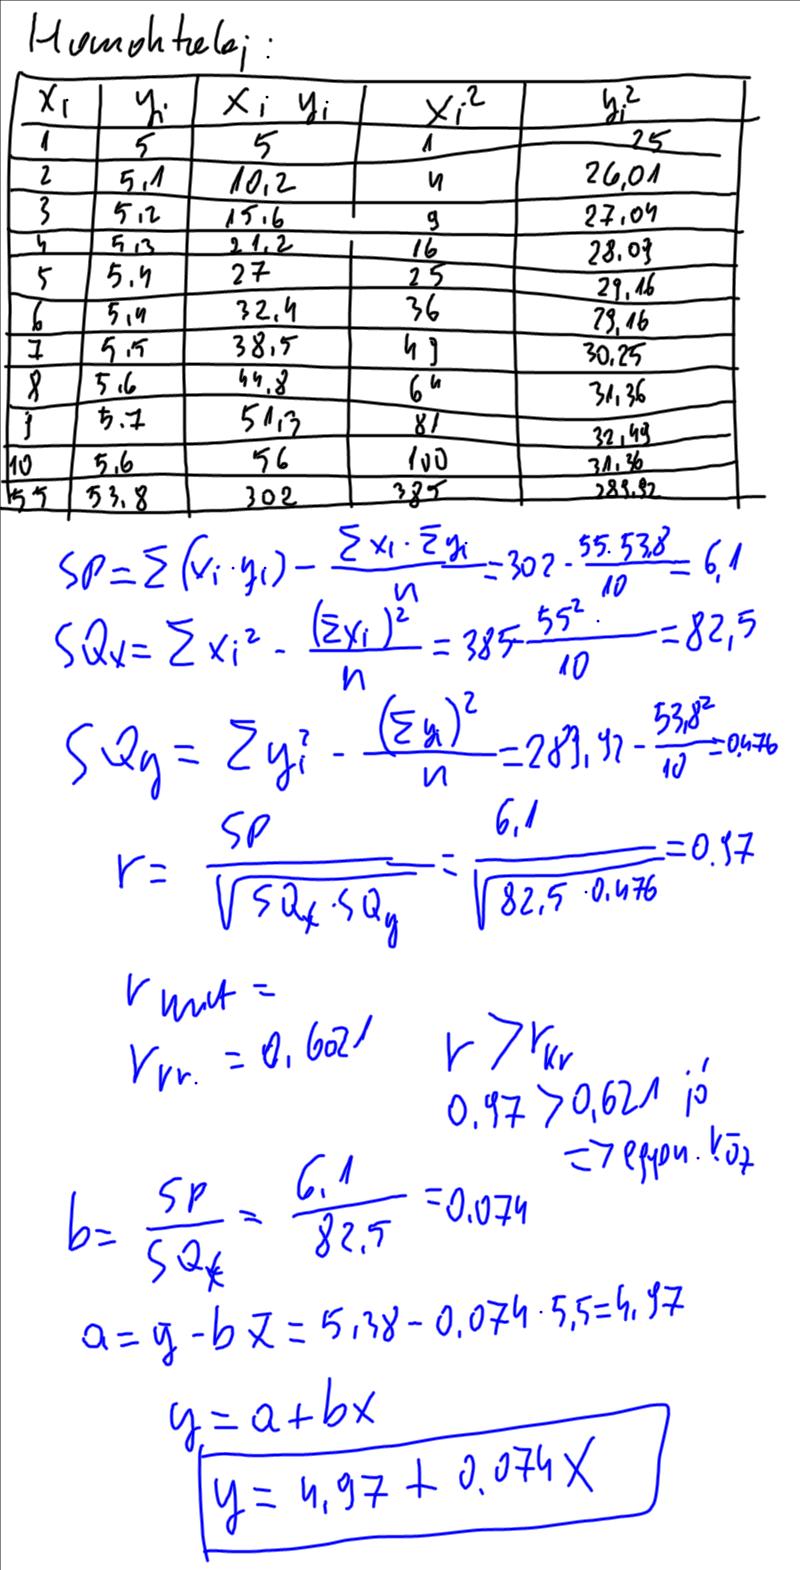 Homoktalaj:
xi yi xi yi xi² yi²
1 5 5 1 25
2 5,1 10,2 4 26,01
3 5,2 15,6 9 27,04
4 5,3 21,2 16 28,09
5 5,4 27 25 29,16
6 5,4 32,4 36 29,16
7 5,5 38,5 49 30,25
8 5,6 44,8 64 31,36
9 5.7 51,3 81 32,49
10 5,6 56 100 31,36
55 53,8 302 385 289,92
SP = Σ(xi·yi) - Σxi·Σyi/n = 302 - 55·53,8/10 = 6,1
SQx = Σxi² - (Σxi)²/n = 385 - 55²/10 = 82,5
SQy = Σyi² - (Σyi)²/n = 289,92 - 53,8²/10 = 0,476
r = SP/√(SQx·SQy) = 6,1/√(82,5·0.476) = 0.97
r =
rkr. = 0,6021
r > rkr
0.97 > 0,621 jó
=>
b = SP/SQx = 6,1/82,5 = 0.074
a = ȳ - b x̄ = 5,38 - 0,074·5,5 = 4,97
y = a + bx
y = 4,97 + 0,074x